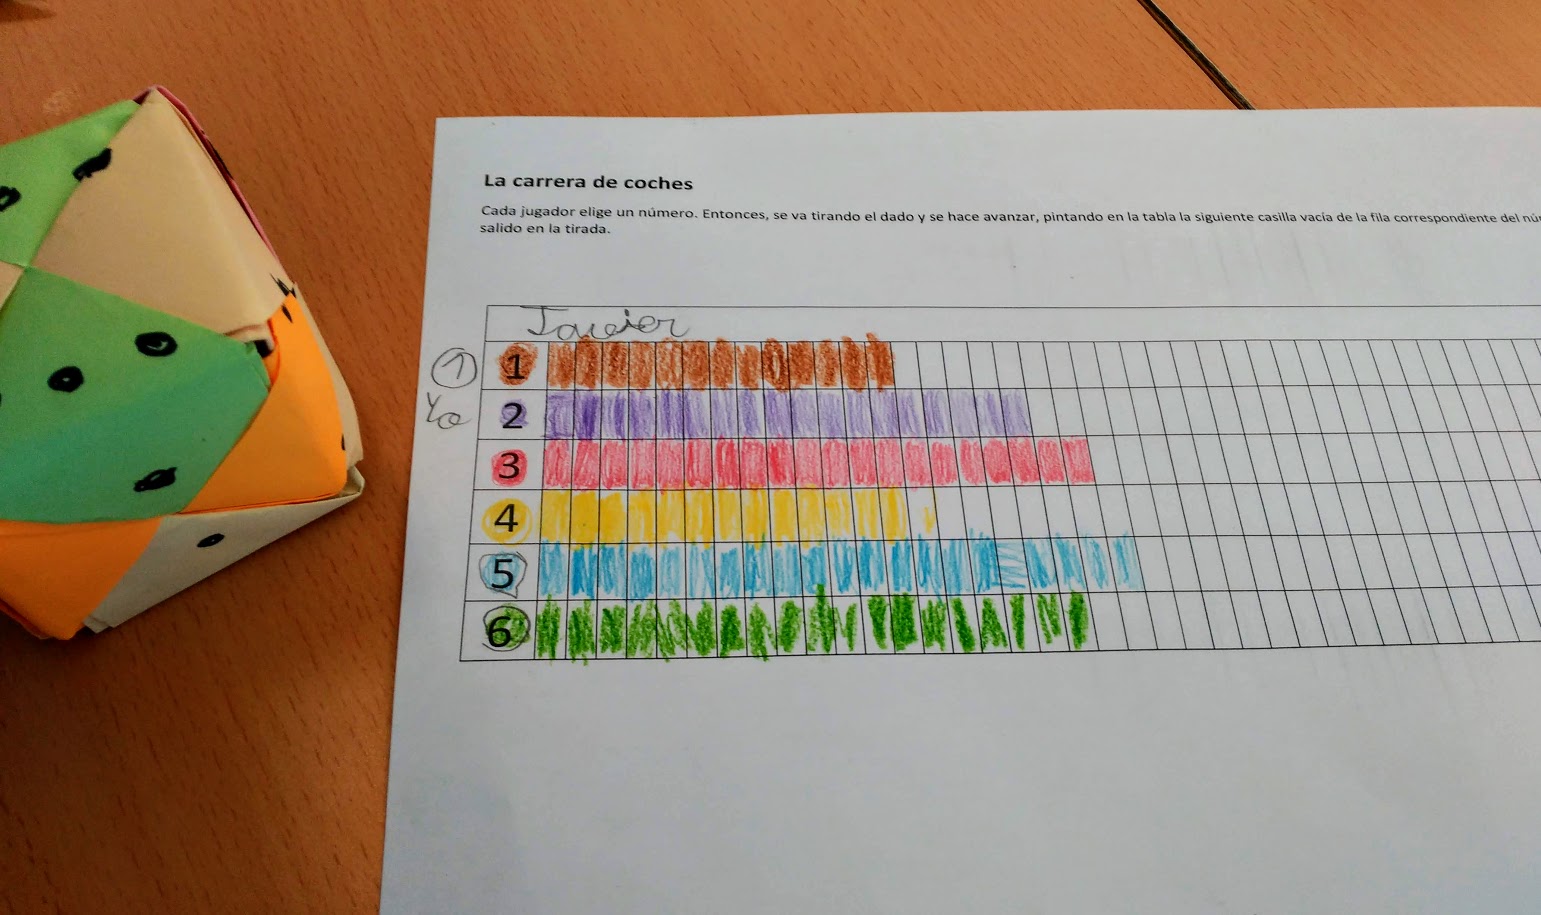 La carrera de coches
Cada jugador elige un número. Entonces, se va tirando el dado y se hace avanzar, pintando en la tabla la siguiente casilla vacía de la fila correspondiente del
salido en la tirada.
Javier
1 1
Yo 2
3
4
5
6